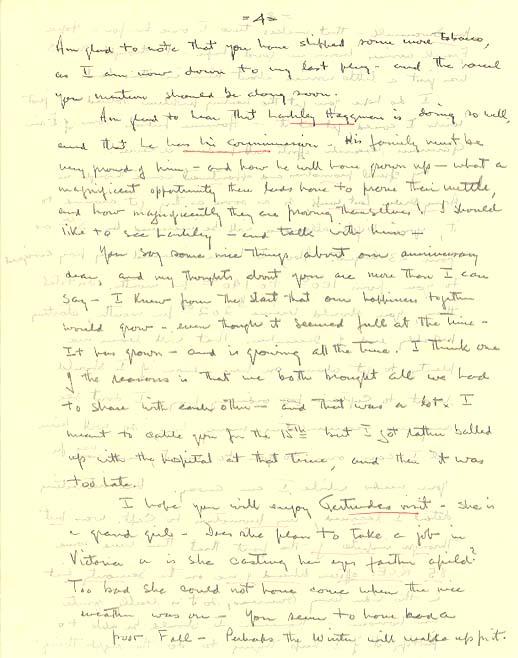 =4=
Am glad to note that you have shipped some more tobacco,
as I am now down to my last plug - and the parcel
you mention should be along soon.
Am glad to hear that Hartley Haggman is doing so well,
and that he has his commission. His family must be
very proud of him - and how he will have grown up - what a
magnificent opportunity these lads have to prove their mettle,
and how magnificently they are proving themselves! I should
like to see Hartley - and talk with him -
You say some nice things about our anniversary
dear, and my thoughts about you are more than I can
say - I knew from the start that our happiness together
would grow - even though it seemed full at the time -
It has grown - and is growing all the time. I think one
of the reasons is that we both brought all we had
to share with each other - and that was a lot. I
meant to cable you for the 15th - but I got rather balled
up with the hospital at that time, and then it was
too late.
I hope you will enjoy Gertrudes visit - she is
a grand girl - Does she plan to take a job in
Victoria or is she casting her eyes farther afield?
Too bad she could not have come when the nice
weather was on - You seem to have had a
poor Fall - Perhaps the Winter will make up for it.